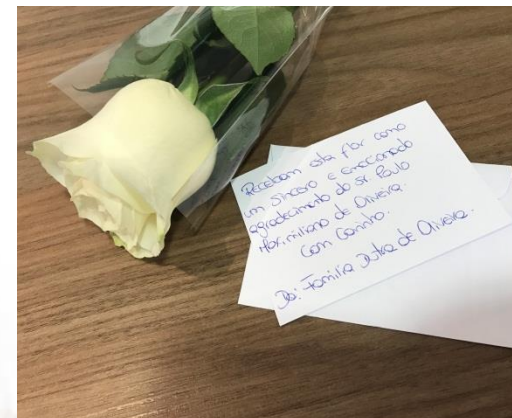 Recebam esta flor como
um sincero e emocionado
agradecimento do sr. Paulo
Maximiliano de Oliveira.
Com Carinho.
Da: Família Dutra de Oliveira.